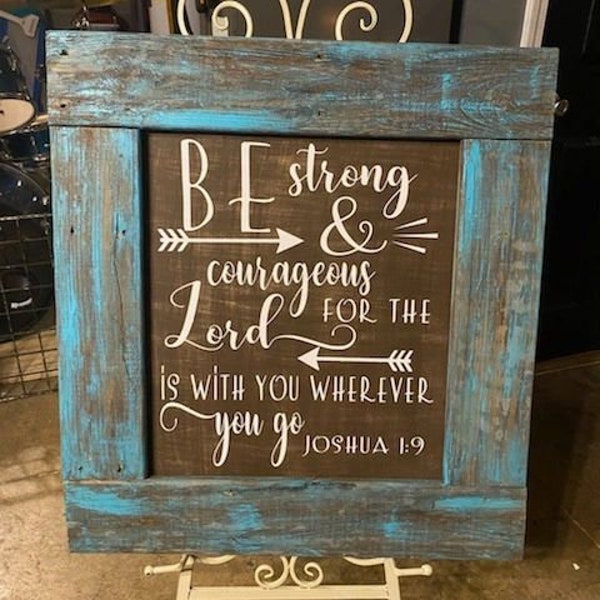 BE strong
&
courageous
FOR THE
Lord
is WiTH YOU WHEREVER
you go
JOSHUA 1:9